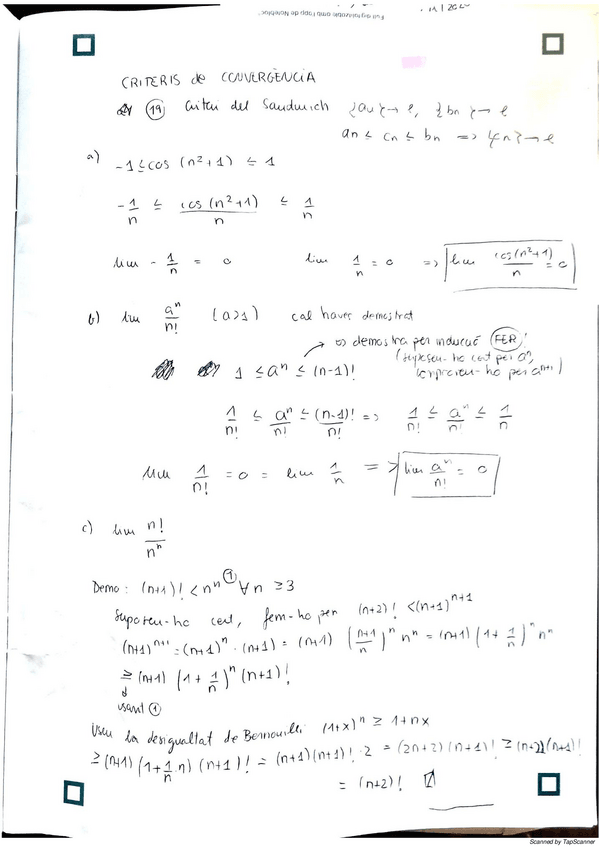 Full digitalitzable amb l'app de Notebloc™
11/2020
CRITERIS de CONVERGÈNCIA
19 Criteri del Sandwich {an}→ℓ, {bn}→ℓ
an ≤ cn ≤ bn => {cn}→ℓ
a) -1 ≤ cos (n²+1) ≤ 1
-1/n ≤ cos(n²+1)/n ≤ 1/n
lim -1/n = 0 lim 1/n = 0 => lim cos(n²+1)/n = 0
b) lim aⁿ/n! (a>1) cal haver demostrat
→ es demostra per inducció (FER)!
(suposeu-ho cert per aⁿ,
comproveu-ho per aⁿ⁺¹)
1 ≤ aⁿ ≤ (n-1)!
1/n! ≤ aⁿ/n! ≤ (n-1)!/n! => 1/n! ≤ aⁿ/n! ≤ 1/n
lim 1/n! = 0 = lim 1/n => lim aⁿ/n! = 0
c) lim n!/nⁿ
Demo: (n+1)! < nⁿ ① ∀n ≥3
Suposem-ho cert, fem-ho per (n+2)! <(n+1)ⁿ⁺¹
(n+1)ⁿ⁺¹ = (n+1)ⁿ · (n+1) = (n+1) ((n+1)/n)ⁿ nⁿ = (n+1) (1 + 1/n)ⁿ nⁿ
≥ (n+1) (1 + 1/n)ⁿ (n+1)!
↓
usant ①
Useu la desigualtat de Bernouilli (1+x)ⁿ ≥ 1+nx
≥ (n+1) (1+1/n n) (n+1)! = (n+1)(n+1)! · 2 = (2n+2) (n+1)! ≥ (n+2)(n+1)!
= (n+2)!
Scanned by TapScanner